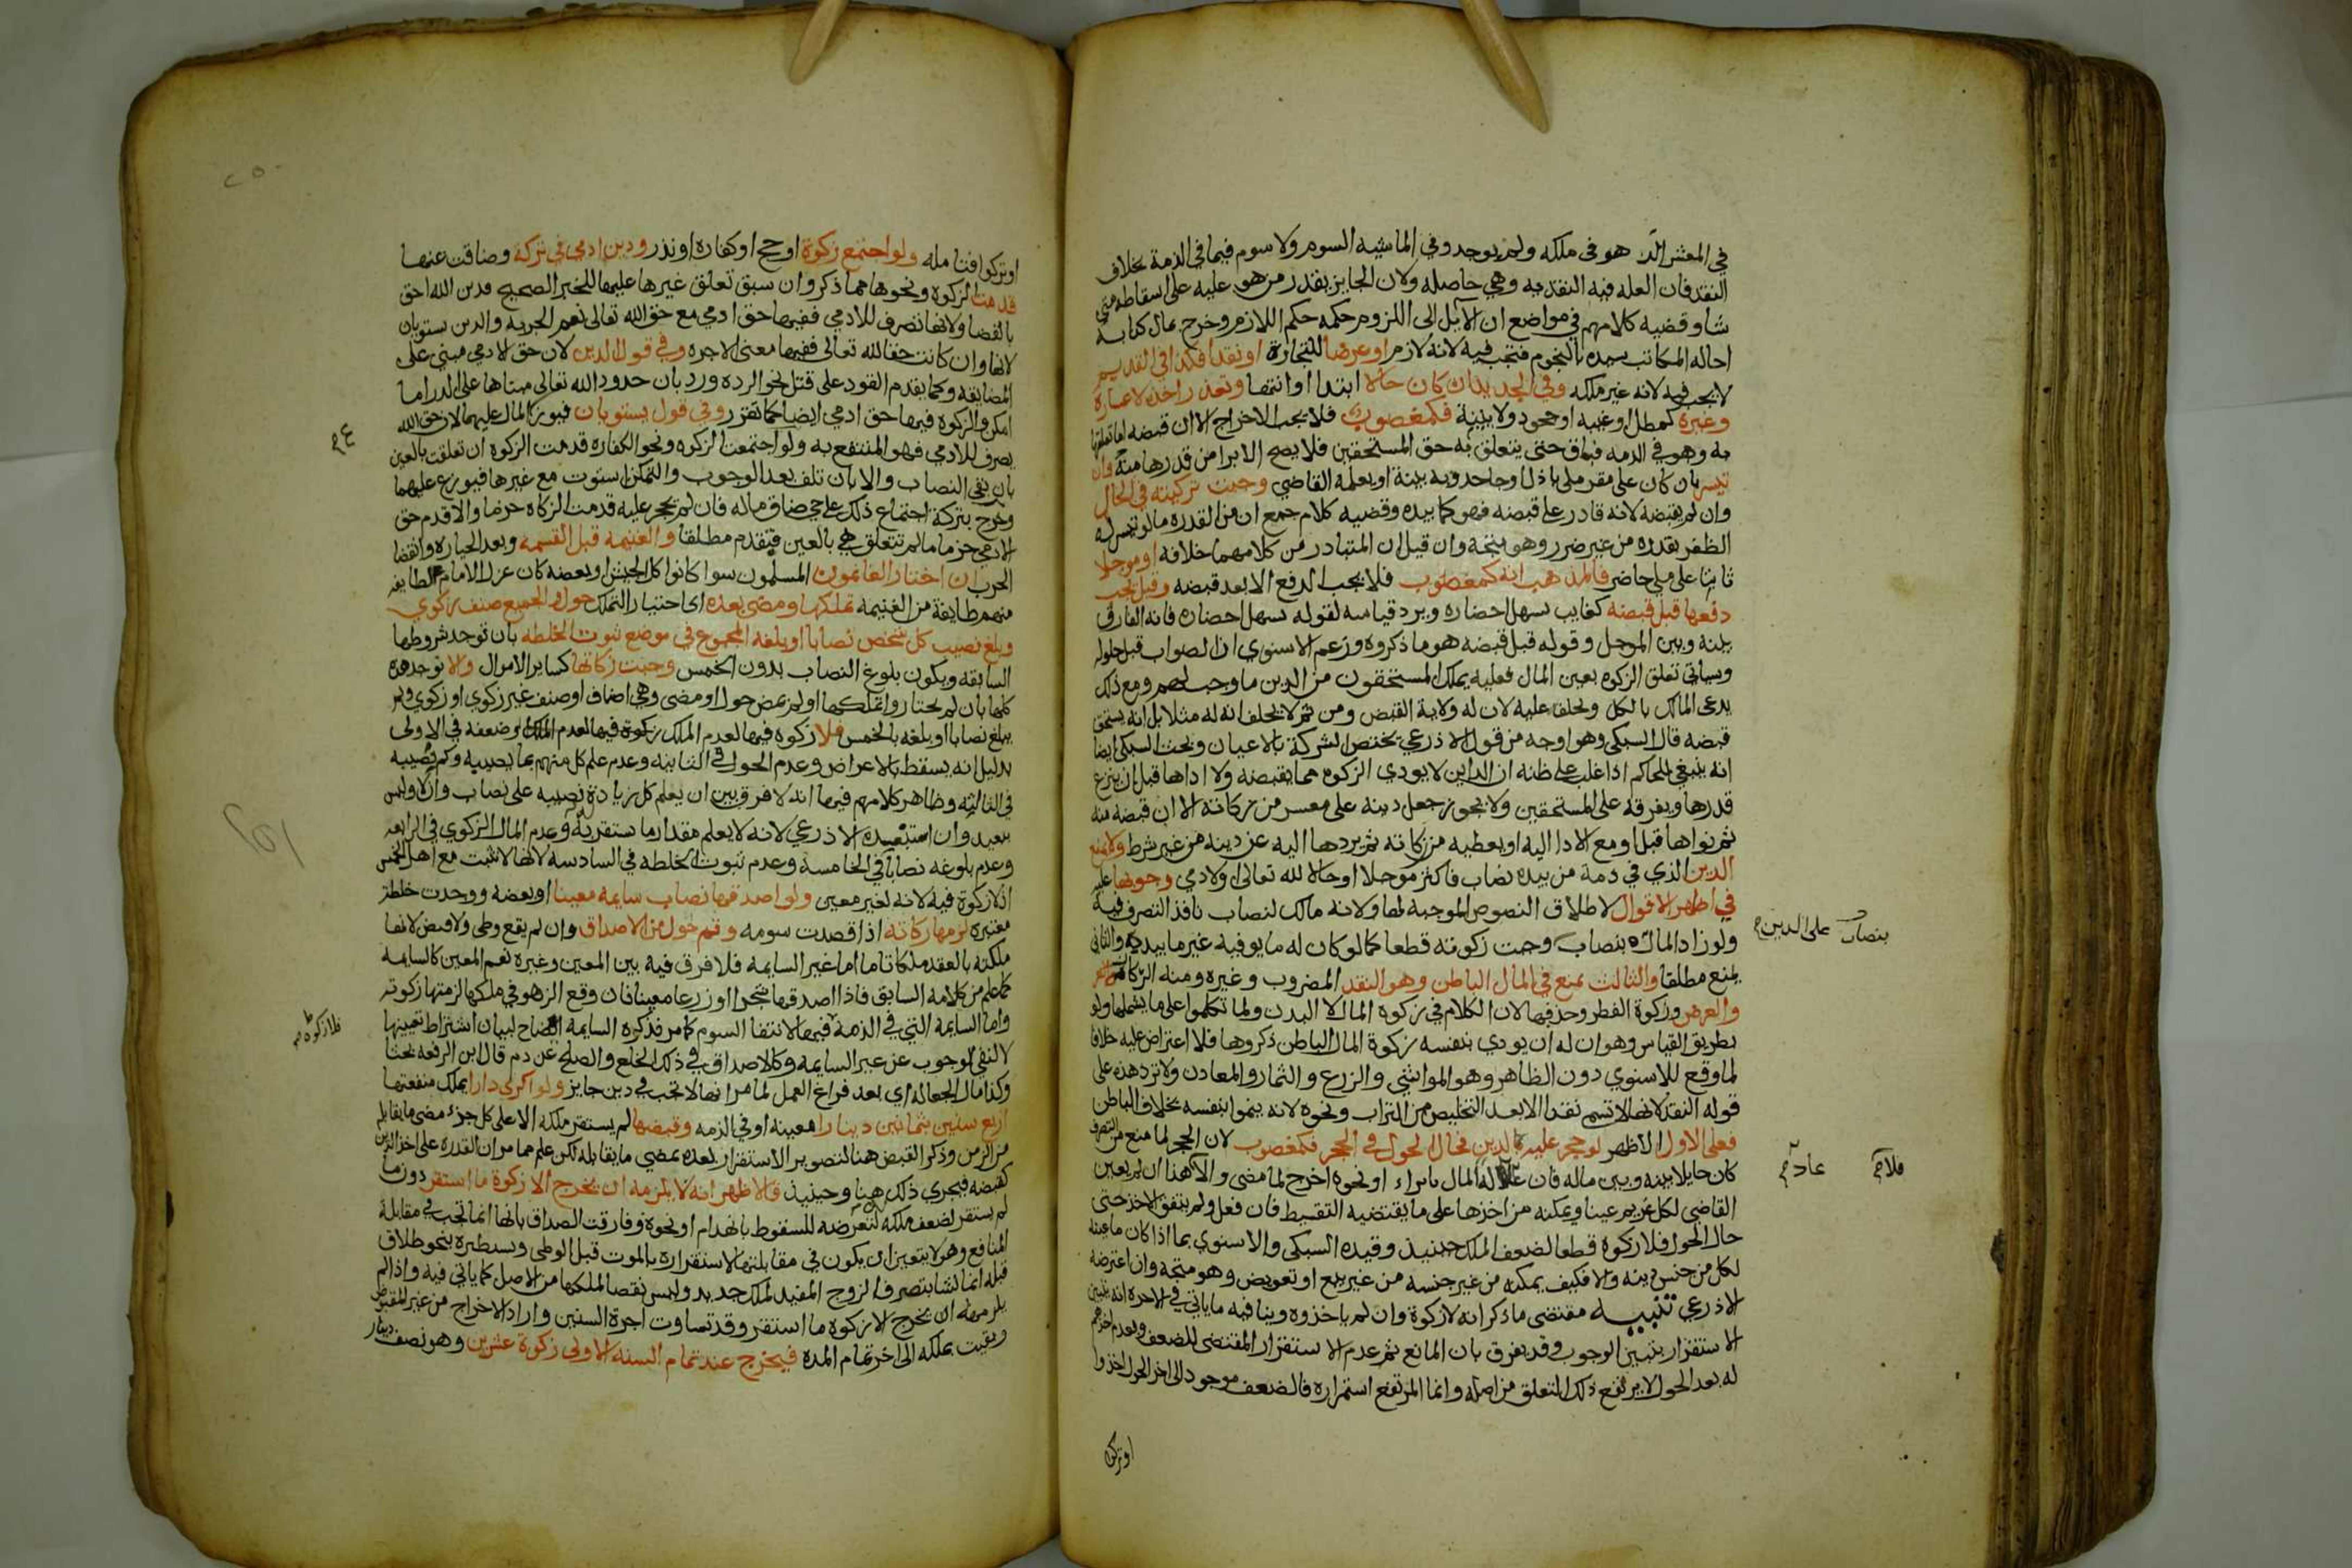 في المعشر الذ هو في ملكه ولم يوجد وفي الماشيه السوم ولا سوم فيما في الذمة بخلاف
النقد فان العله فيه النقديه وهي حاصله ولان الجايز يقدر من هو عليه على اسقاطه متى
شاو قضيه كلامهم في مواضع ان الآيل الى اللزوم حكمه حكم اللازم وخرج بمال كتابة
احاله المكاتب سيده بالنجوم فتجب فيه لانه لازم او عرضا للتجارة او نقدا فكذا في القديم
لا يجب فيه لانه غير ملكه وفي الجديد ان كان حالا ابتدا او انتها وتعذر اخذه لاعسارة
وغيره كمطل او غيبه او جحود ولا بينة فكمغصوب فلا يجب الاخراج الا ان قبضه اما تعلقها
به وهو في الذمه فباق حتى يتعلق به حق المستحقين فلا يصح الابرا من قدرها منه وان
تيسر بان كان على مقر ملي باذل او جاحد وبه بينة او يعلمه القاضي وجبت تزكيته في الحال
وان لم يقبضه لانه قادر على قبضه فهو كما بيده وقضيه كلام جمع ان من القدره ما لو تيسر له
الظفر بقدره من غير ضرر وهو متجه وان قيل ان المتبادر من كلامهما خلافه او موجلا
ثابتا على ملي حاضر فالمذهب انه كمغصوب فلا يجب الدفع الا بعد قبضه وقيل يجب
دفعها قبل قبضه كغايب سهل احضاره ويرد قياسه لقوله سهل احضاره فانه الفارق
بينه وبين الموجل وقوله قبل قبضه هو ما ذكروه وزعم الاسنوي ان الصواب قبل حلوله
وسياتي تعلق الزكوه بعين المال فعليه يملك المستحقون من الدين ما وجب لهم ومع ذلك
يدعي المالك بالكل ويحلف عليه لان له ولاية القبض ومن ثم لا يحلف انه له مثلا بل انه يستحق
قبضه قال السبكي وهو اوجه من قول الاذرعي يختص الشركة بالاعيان وبحث السبكي ايضا
انه ينبغي للحاكم اذا غلب على ظنه ان الداين لا يودي الزكوه مما يقبضه ولا اداها قبل ان ينزع
قدرها ويفرقه على المستحقين ولا يجوز جعل دينه على معسر من زكاته الا ان قبضه منه
ثم نواها قبل او مع الادا اليه او يعطيه من زكاته ثم يردها اليه عن دينه من غير شرط ولا يمنع
الدين الذي في ذمة من بيده نصاب فاكثر موجلا او حالا لله تعالى او لادمي وجوبها عليه
في اظهر الاقوال لاطلاق النصوص الموجبه لها ولانه مالك لنصاب نافذ التصرف فيه
ولو زاد المال بنصاب وجبت زكوته قطعا كما لو كان له ما يوفيه غير ما بيده والثاني
بنصاب على الدين صح
يمنع مطلقا والثالث يمنع في المال الباطن وهو النقد المضروب وغيره ومنه الركاز
والعرض وزكوة الفطر وحذفها لان الكلام في زكوه المال لا البدن ولما تكلموا على ما يشملها ولو
بطريق القياس وهو ان له ان يودي بنفسه زكوة المال الباطن ذكروها فلا اعتراض عليه خلافا
لما وقع للاسنوي دون الظاهر وهو المواشي والزرع والثمار والمعادن ولا ترد هذه على
قوله النقد لانها لا تسمى نقدا الا بعد التخليص من التراب ونحوه لانه ينموا بنفسه بخلاف الباطن
فعلى الاول الاظهر لو حجر عليه بالدين فحال الحول في الحجر فكمغصوب لان الحجر لما منع من التصرف
كان حايلا بينه وبين ماله فان له المال بابراء او نحوه اخرج لما مضى والا هذا ان لم يعين
عاد صح
فلا صح
القاضي لكل غريم عينا ويمكنه من اخذها على ما يقتضيه التقسيط فان فعل ولم يتفق الاخذ حتى
حال الحول فلا زكوه قطعا لضعف الملك حينيذ وقيده السبكي والاسنوي بما اذا كان ما عينه
لكل من جنس دينه والا فكيف يمكنه من غير جنسه من غير بيع او تعويض وهو متجه وان اعترضه
الاذرعي تنبيه مقتضى ما ذكر انه لا زكوة وان لم ياخذوه وينافيه ما ياتي في الاجره انه يتبين
الاستقرار بتبين الوجوب وقد يفرق بان المانع ثم عدم الاستقرار المقتضى للضعف وبعدم اخذهم
له بعد الحول لا يرتفع ذلك التعلق من اصله وانما المرتفع استمراره فالضعف موجود الى اخر الحول اخذوا
او تركوا
او تركوا فتامله ولو اجتمع زكوة او حج او كفاره او نذر ودين ادمي في تركة وضاقت عنها
قدمت الزكوه ونحوها مما ذكر وان سبق تعلق غيرها عليها للخبر الصحيح فدين الله احق
بالقضا ولانها تصرف للادمي ففيها حق ادمي مع حق الله تعالى نعم الجزيه والدين يستويان
لانها وان كانت حقا لله تعالى ففيها معنى الاجره وفي قول الدين لان حق الادمي مبني على
المضايقه وكما يقدم القود على قتل نحو الرده ورد بان حدود الله تعالى مبناها على الدرا ما
امكن والزكوه فيها حق ادمي ايضا كما تقرر وفي قول يستويان فيوزع المال عليهما لان حق الله
يصرف للادمي فهو المنتفع به ولو اجتمعت الزكوه ونحو الكفاره قدمت الزكوه ان تعلقت بالعين
بان بقي النصاب والا بان تلف بعد الوجوب والتمكن استوت مع غيرها فيوزع عليهما
وخرج بتركة اجتماع ذلك على حي ضاق ماله فان لم يحجر عليه قدمت الزكاه جزما والا قدم حق
الادمي جزما ما لم تتعلق هي بالعين فيقدم مطلقا والغنيمه قبل القسمه وبعد الحيازه وانقضا
الحرب ان اختار الغانمون المسلمون سوا كانوا كل الجيش او بعضه كان عزل الامام لطايفه
منهم طايفة من الغنيمه تملكها ومضى بعده اي اختيار التملك حول والجميع صنف زكوي
وبلغ نصيب كل شخص نصابا او بلغه المجموع في موضع ثبوت الخلطه بان توجد شروطها
السابقه ويكون بلوغ النصاب بدون الخمس وجبت زكاتها كساير الاموال والا توجد هذه
كلها بان لم يختاروا تملكها او لم يمض حول او مضى وهي اصناف او صنف غير زكوي او زكوي ولم
يبلغ نصابا او بلغه بالخمس فلا زكوه فيها لعدم الملك زكوة فيها لعدم الملك او ضعفه في الاولى
بدليل انه يسقط بالاعراض وعدم الحول في الثانيه وعدم علم كل منهم بما يصيبه وكم يصيبه
في الثالثه وظاهر كلامهم فيها انه لا فرق بين ان يعلم كل زيادة نصيبه على نصاب وان لا وليس
ببعيد وان استبعده الاذرعي لانه لا يعلم مقدار ما يستقر له وعدم المال الزكوي في الرابعه
وعدم بلوغه نصابا في الخامسه وعدم ثبوت الخلطه في السادسه لانها لا تثبت مع اهل الخمس
اذ لا زكوة فيه لانه لغير معين ولو اصدقها نصاب سايمة معينا او بعضه ووجدت خلطة
معتبره لزمها زكاته اذا قصدت سومه وتم حول من الاصداق وان لم يقع وطي ولا قبض لانها
ملكته بالعقد ملكا تاما اما غير السايمه فلا فرق فيه بين المعين وغيره نعم المعين كالسايمه
كما علم من كلامه السابق فاذا اصدقها شجرا او زرعا معينا فان وقع الزهو في ملكها لزمتها زكوته
واما السايمة التي في الذمة فيها لانتفا السوم كما مر فذكره السايمة ايضاح لبيان اشتراط تعيينها
فلا زكوه صح
لا لنفي الوجوب عن غير السايمه وكالاصداق في ذلك الخلع والصلح عن دم قال ابن الرفعه بحثا
وكذا مال الجعاله اي بعد فراغ العمل لما مر انها لا تجب في دين جايز ولو اكرى دارا يملك منفعتها
اربع سنين بثمانين دينارا معينه او في الذمه وقبضها لم يستقر ملكه الا على كل جزء مضى ما يقابله
من الزمن وذكر القبض هنا لتصوير الاستقرار بعده بمضي ما يقابله لكن علم مما مر ان القدره على اخذ الدين
كقبضه فيجري ذلك هنا وحينيذ فالاظهر انه لا يلزمه ان يخرج الا زكوة ما استقر دون ما
لم يستقر لضعف ملكه لتعرضه للسقوط بانهدام او نحوه وفارقت الصداق بانها انما تجب في مقابلة
المنافع وهو لا يتعين ان يكون في مقابلتها لاستقراره بالموت قبل الوطي وتشطيره بنحو طلاق
قبله انما نشا بتصرف الزوج المفيد لملك جديد وليس نقصا لملكها من الاصل كما ياتي فيه واذا لم
يلزمه ان يخرج الا زكوة ما استقر وقد تساوت اجرة السنين واراد الاخراج من غير المقبوض
وبقيت بملكه الى اخر تمام المده فيخرج عند تمام السنه الاولى زكوة عشرين وهو نصف دينار